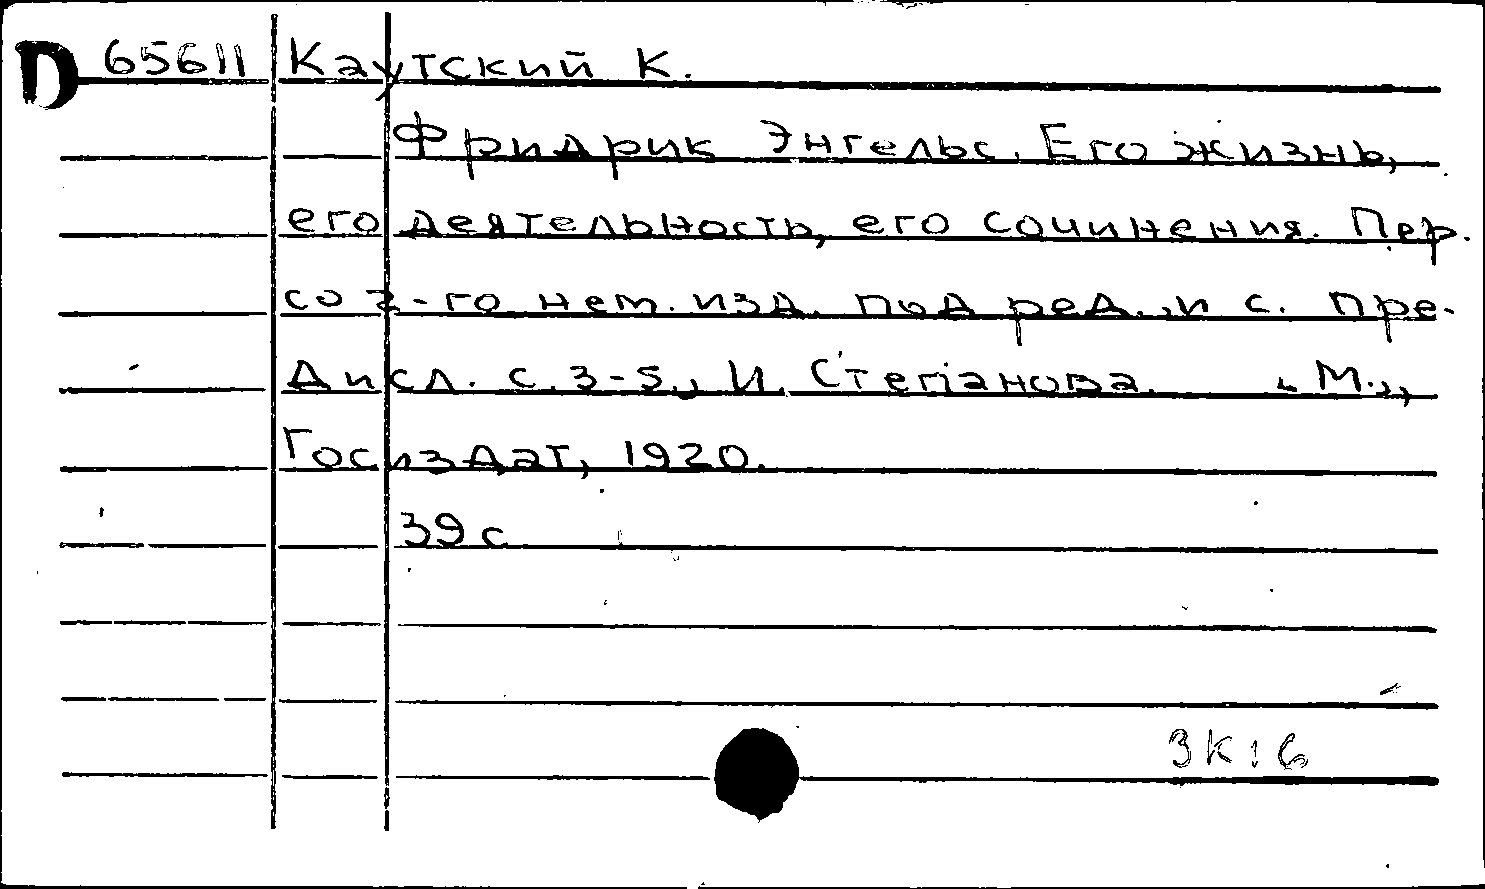 D 65611 Каутский К.
Фридрик Энгельс. Его жизнь,
его деятельность, его сочинения. Пер.
со 2-го нем. изд. под ред., и с. пре-
дисл. с. 3-5., И. Степанова. "М.,,
Госиздат, 1920.
39 с
3К1б